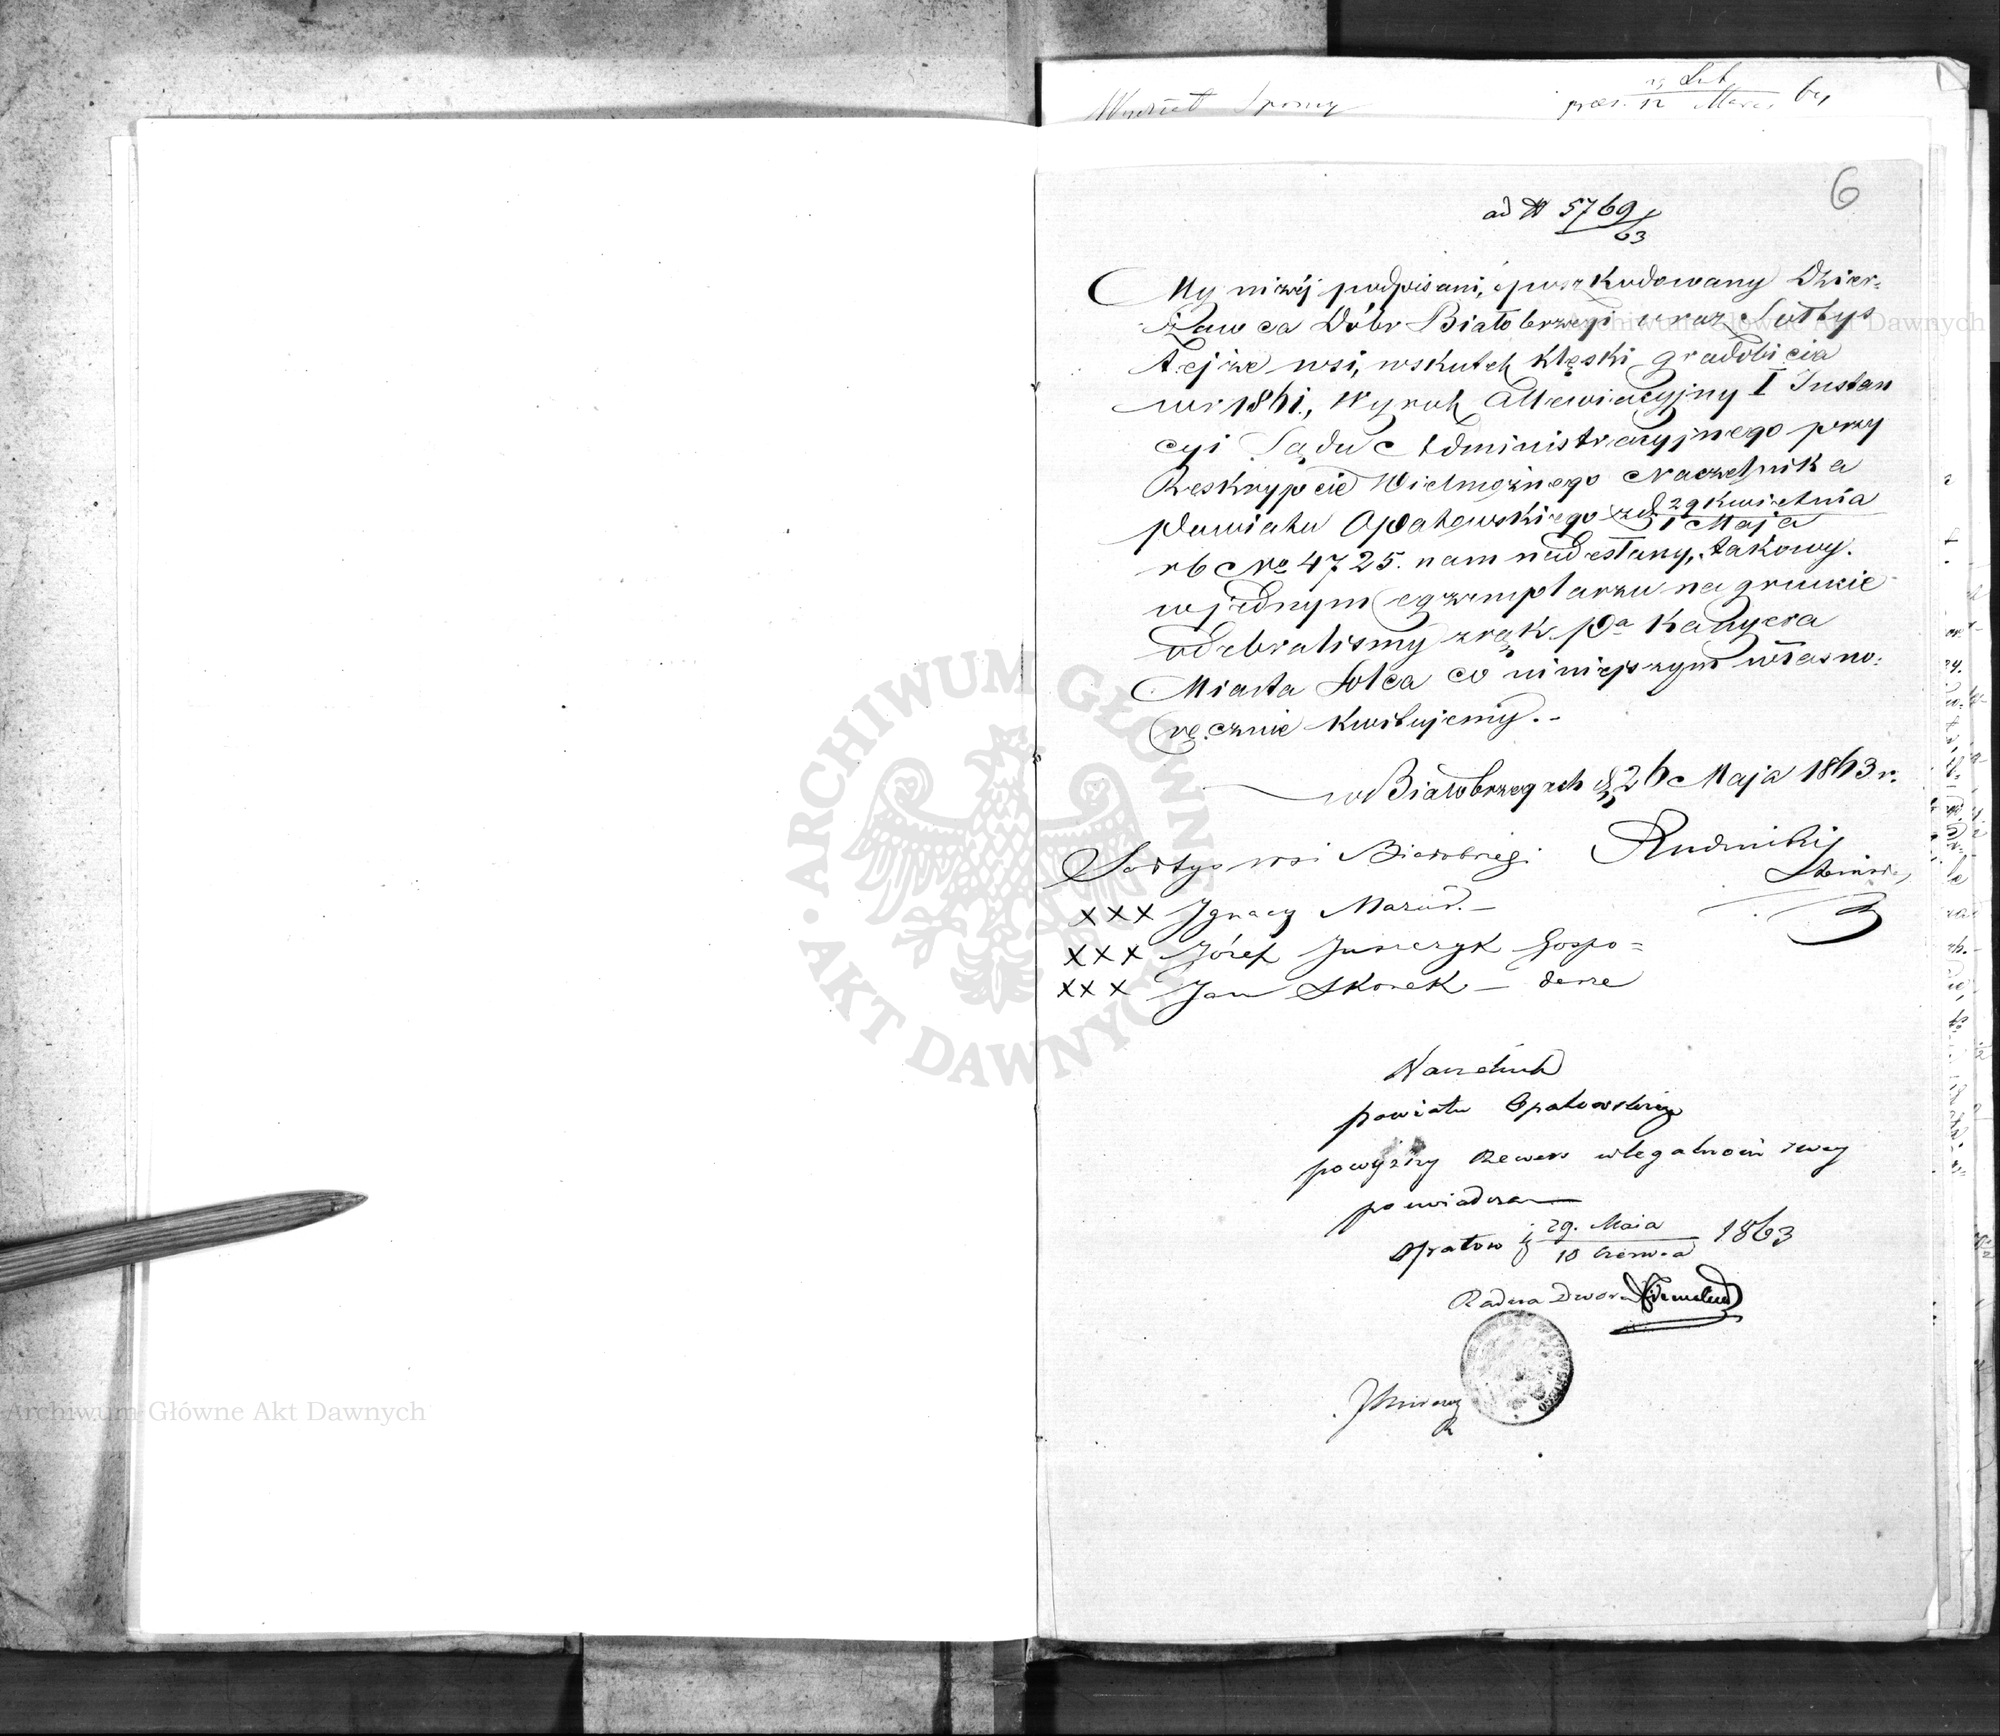 Wydział Sporny
29 Lut
præs. 12 Marca 64
6
ad N 5769/63
My niżéj podpisani, poszkodowany Dzier-
żawca Dóbr Białobrzegi wraz Sołtys
tejże wsi, wskutek klęski gradobicia
wr 1861., Wyrok Allewiacyjny I Instan
cyi Sądu Administracyjnego przy
Reskrypcie Wielmożnego Naczelnika
Powiatu Opatowskiego zd 29 Kwietnia
11 Maja
rb No 4725. nam nadesłany, takowy.
w jednym egzemplarzu na gruncie
odebraliśmy z rąk Pa Kassyera
Miasta Solca co niniejszym własno-
ręcznie kwitujemy.-
w Białobrzegach d 26 Maja 1863 r.
Sołtys wsi Białobrzegi
Rudnicki
xxx Ignacy Mazur.-
xxx Józef Juszczyk Gospo=
xxx Jan Skorek - darze
Naczelnik
powiatu Opatowskiego
powyższy Rewers w legalności swey
poswiadcza
Opatow d 29. Maia 1863
10 Czerwca
Radca Dworu
ARCHIWUM GŁÓWNE AKT DAWNYCH
Archiwum Główne Akt Dawnych
Archiwum Główne Akt Dawnych